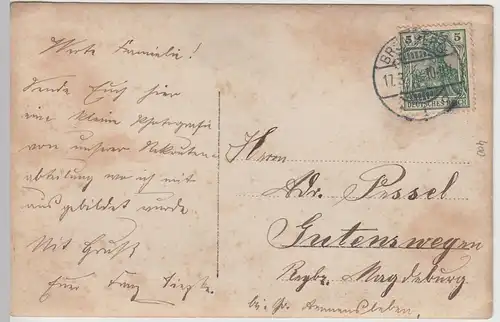 Werte Familie!
Sende Euch hier
eine kleine Photografie
von unserer Rekruten-
abteilung wo ich mit
ausgebildet wurde
Mit Gruß
Euer Franz
5 5
DEUTSCHES
17.3.
Herrn
Ad. Pessel
Gutenswegen
Regbz. Magdeburg